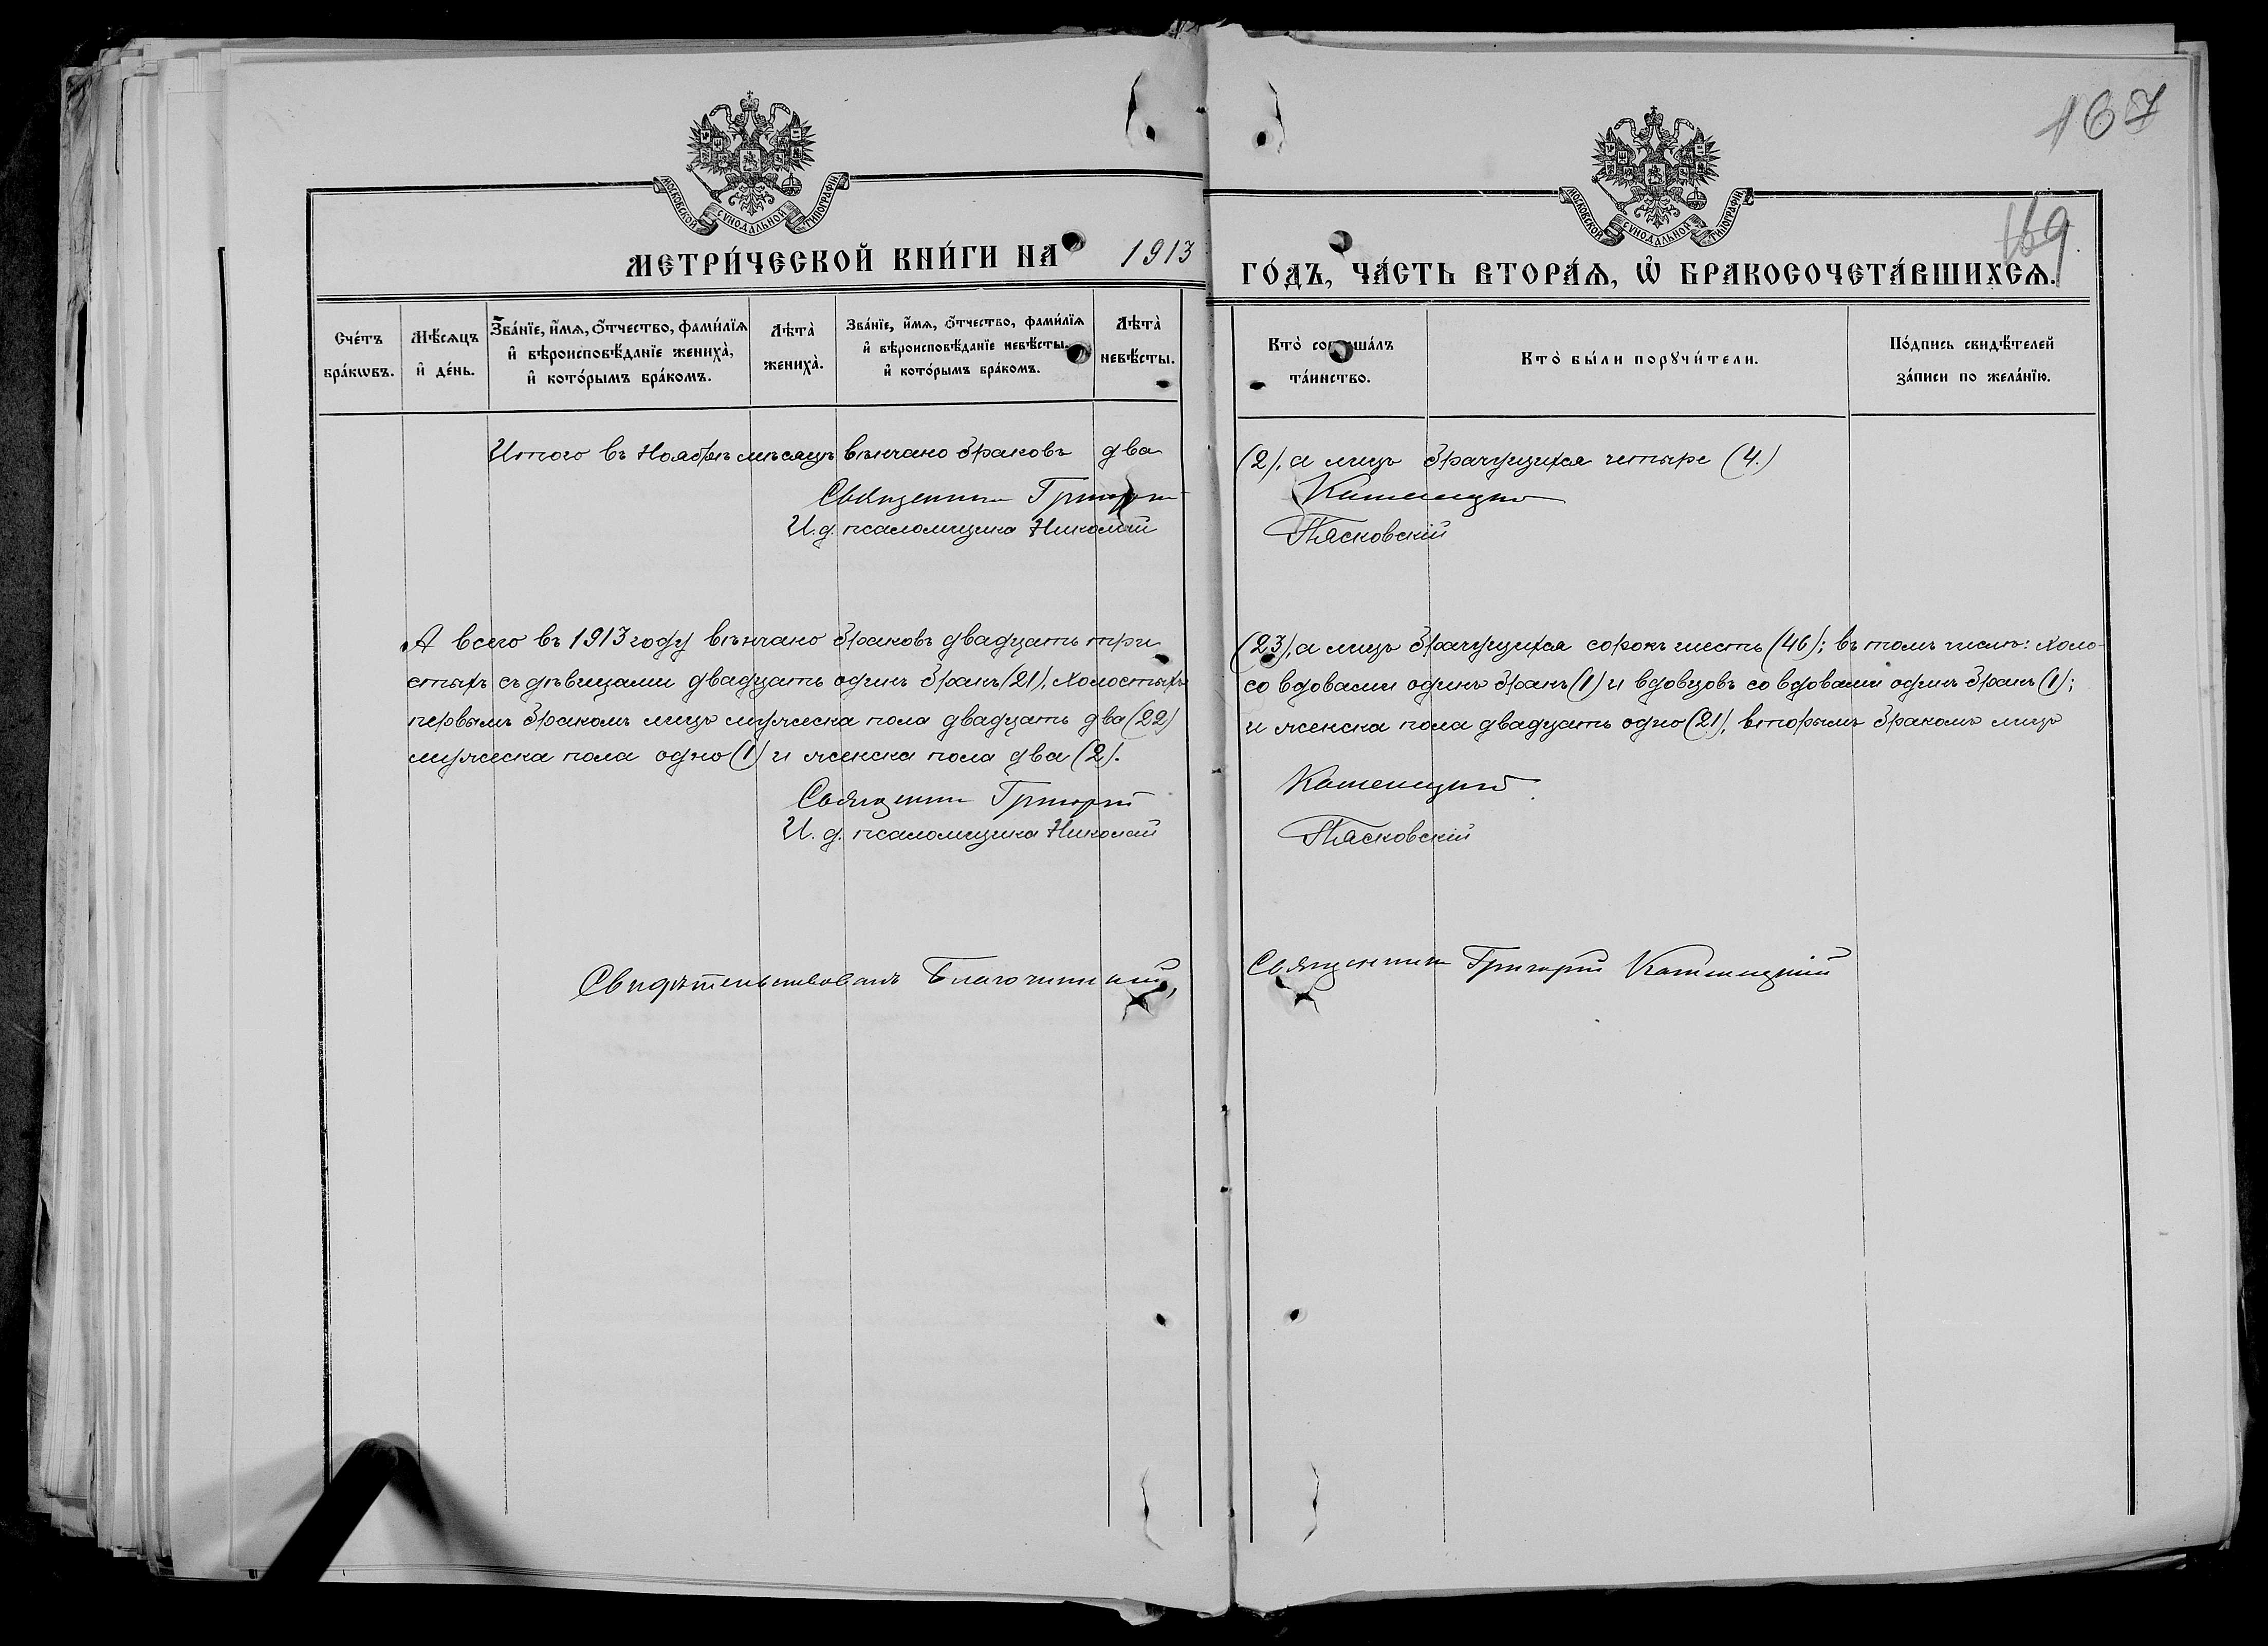 167
169
МОСКОВСКОЙ СѴНОДАЛЬНОЙ ТИПОГРАФІИ
МОСКОВСКОЙ СѴНОДАЛЬНОЙ ТИПОГРАФІИ
МЕТРИ́ЧЕСКОЙ КНИ́ГИ НА 1913 ГО́ДЪ, ЧА́СТЬ ВТОРА́Ѧ, Ѽ БРАКОСОЧЕТА́ВШИХСѦ.
Сче́тъ бра́кѡвъ.
Мѣ́сѧцъ и҆ де́нь.
Зва́нїе, и҆́мѧ, ѻ҆́тчество, фами́лїѧ и҆ вѣроисповѣ́данїе жениха̀, и҆ кото́рымъ бра́комъ.
Лѣта̀ жениха̀.
Зва́нїе, и҆́мѧ, ѻ҆́тчество, фами́лїѧ и҆ вѣроисповѣ́данїе невѣ́сты. и҆ кото́рымъ бра́комъ.
Лѣта̀ невѣ́сты.
Кто̀ соверша́лъ та́инство.
Кто̀ бы́ли порꙋчи́тели.
По́дпись свидѣ́телей за́писи по жела́нїю.
Итого въ Ноябрѣ мѣсяцѣ вѣнчано браковъ два (2), а лицъ брачущихся четыре (4.)
Священник Григорій Каменецкій
И. д. псаломщика Николай Пясковскій
А всего въ 1913 году вѣнчано браковъ двадцать три (23), а лицъ брачущихся сорокъ шесть (46); въ томъ числѣ: холо-
стыхъ съ дѣвицами двадцать одинъ бракъ (21), холостыхъ со вдовами одинъ бракъ (1) и вдовцовъ со вдовами одинъ бракъ (1);
первымъ бракомъ лицъ мужеска пола двадцать два (22) и женска пола двадцать одно (21), вторымъ бракомъ лицъ
мужеска пола одно (1) и женска пола два (2).
Священник Григорій Каменецкій
И. д. псаломщика Николай Пясковскій
Свидѣтельствовалъ Благочинный, Священник Григорій Каменецкій